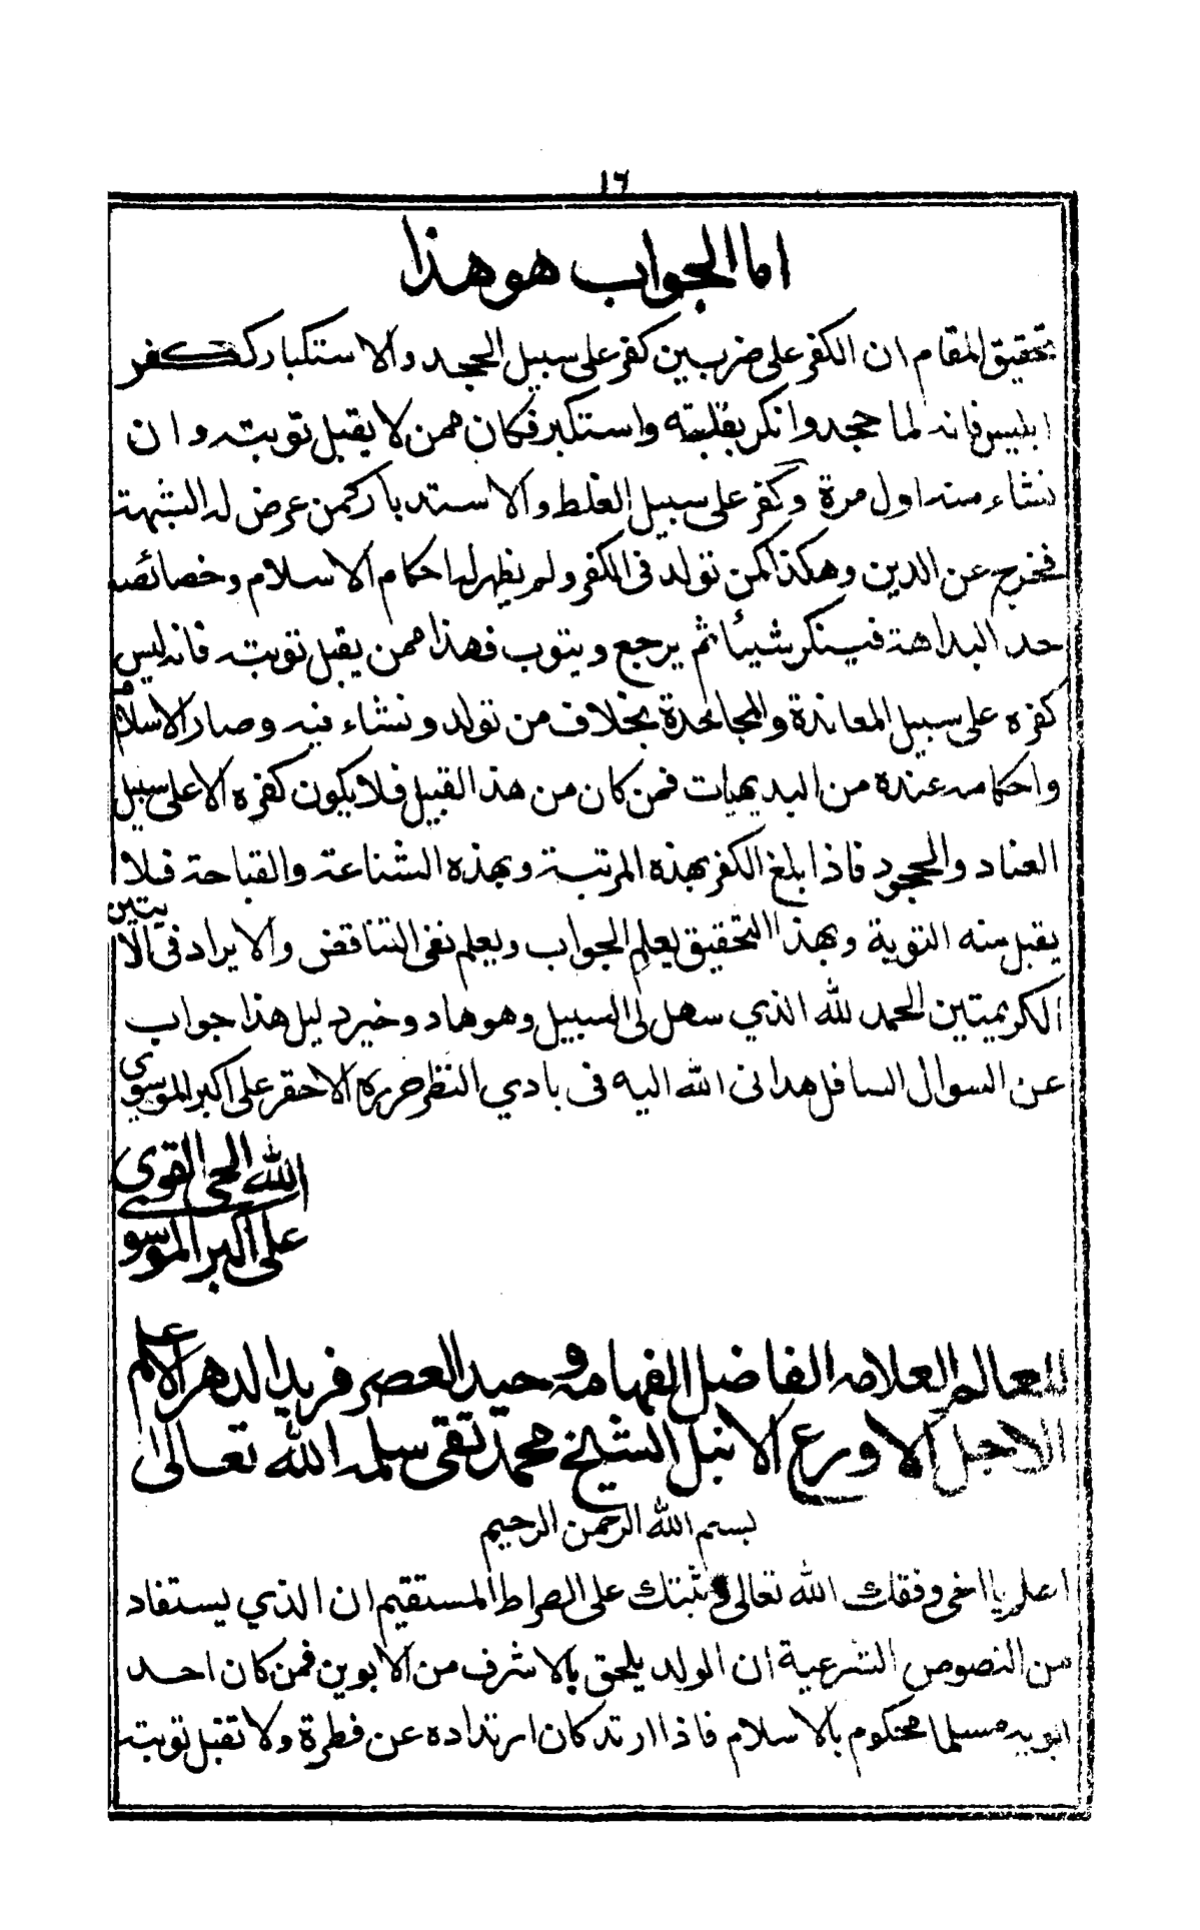 ١٦
اما الجواب هو هذا
تحقيق المقام ان الكفر على ضربين كفر على سبيل الجحد والاستكبار ككفر
ابليس فانه لما جحد وانكر بقلبته واستكبر فكان ممن لا يقبل توبته وان
نشاء منه اول مرة وكفر على سبيل الغلط والاستدبار كمن عرض له الشبهة
فخرج عن الدين وهكذا كمن تولد فى الكفر ولم يظهر له احكام الاسلام وخصائصه
حد البداهة فينكر شيئا ثم يرجع ويتوب فهذا ممن يقبل توبته فانه ليس
كفره على سبيل المعاندة والمجاحدة بخلاف من تولد ونشاء فيه وصار الاسلام
واحكامه عنده من البديهيات فمن كان من هذا القبيل فلا يكون كفره الا على سبيل
العناد والجحود فاذا بلغ الكفر بهذه المرتبة وبهذه الشناعة والقباحة فلا
يقبل منه التوبة وبهذا التحقيق يعلم الجواب ويعلم نفى التناقض والايراد فى الايتين
الكريمتين الحمد لله الذي سهل لى السبيل وهو هاد وخير دليل هذا جواب
عن السوال السافل هدانى الله اليه فى بادي النظر حرره الاحقر على اكبر الموسوى
الله الحى القوى
على اكبر الموسو
للعالم العلامه الفاضل الفهامه وحيد العصر فريد الدهر الاعلم
الاجل الاورع الانبل الشيخ محمد تقى سلمه الله تعالى
بسم الله الرحمن الرحيم
اعلم يا اخى وفقك الله تعالى وثبتك على الصراط المستقيم ان الذي يستفاد
من النصوص الشرعية ان الولد يلحق بالاشرف من الابوين فمن كان احد
ابويه مسلما محكوم بالاسلام فاذا ارتد كان ارتداده عن فطرة ولا تقبل توبته